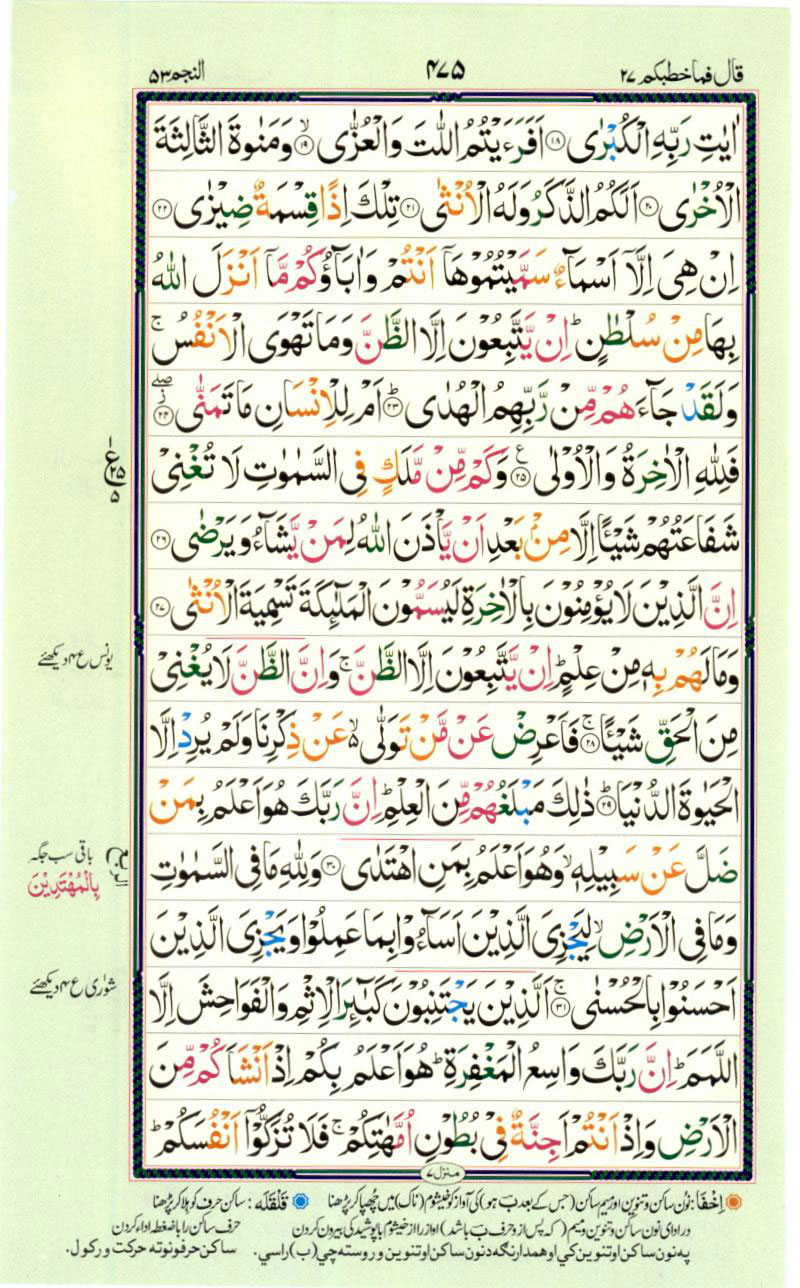 قال فما خطبکم ۲۷
۴۷۵
النجم ۵۳
اٰیٰتِ رَبِّهِ الْكُبْرٰى ۝۱۸ اَفَرَءَیْتُمُ اللّٰتَ وَالْعُزّٰى ۙ۝۱۹ وَمَنٰوةَ الثَّالِثَةَ
الْاُخْرٰى ۝۲۰ اَلَكُمُ الذَّكَرُ وَلَهُ الْاُنْثٰى ۝۲۱ تِلْكَ اِذًا قِسْمَةٌ ضِیْزٰى ۝۲۲
اِنْ هِیَ اِلَّاۤ اَسْمَآءٌ سَمَّیْتُمُوْهَاۤ اَنْتُمْ وَاٰبَآؤُكُمْ مَّاۤ اَنْزَلَ اللّٰهُ
بِهَا مِنْ سُلْطٰنٍ ؕ اِنْ یَّتَّبِعُوْنَ اِلَّا الظَّنَّ وَمَا تَهْوَى الْاَنْفُسُ ۚ
وَلَقَدْ جَآءَهُمْ مِّنْ رَّبِّهِمُ الْهُدٰى ؕ۝۲۳ اَمْ لِلْاِنْسَانِ مَا تَمَنّٰى ۝۲۴
فَلِلّٰهِ الْاٰخِرَةُ وَالْاُوْلٰى ۝۲۵ وَكَمْ مِّنْ مَّلَكٍ فِی السَّمٰوٰتِ لَا تُغْنِیْ
شَفَاعَتُهُمْ شَیْـًٔا اِلَّا مِنْۢ بَعْدِ اَنْ یَّاْذَنَ اللّٰهُ لِمَنْ یَّشَآءُ وَیَرْضٰى ۝۲۶
اِنَّ الَّذِیْنَ لَا یُؤْمِنُوْنَ بِالْاٰخِرَةِ لَیُسَمُّوْنَ الْمَلٰٓئِكَةَ تَسْمِیَةَ الْاُنْثٰى ۝۲۷
وَمَا لَهُمْ بِهٖ مِنْ عِلْمٍ ؕ اِنْ یَّتَّبِعُوْنَ اِلَّا الظَّنَّ ۚ وَاِنَّ الظَّنَّ لَا یُغْنِیْ
مِنَ الْحَقِّ شَیْـًٔا ۚ۝۲۸ فَاَعْرِضْ عَنْ مَّنْ تَوَلّٰى ۙ۬ عَنْ ذِكْرِنَا وَلَمْ یُرِدْ اِلَّا
الْحَیٰوةَ الدُّنْیَا ؕ۝۲۹ ذٰلِكَ مَبْلَغُهُمْ مِّنَ الْعِلْمِ ؕ اِنَّ رَبَّكَ هُوَ اَعْلَمُ بِمَنْ
ضَلَّ عَنْ سَبِیْلِهٖ ۙ وَهُوَ اَعْلَمُ بِمَنِ اهْتَدٰى ۝۳۰ وَلِلّٰهِ مَا فِی السَّمٰوٰتِ
وَمَا فِی الْاَرْضِ ۙ لِیَجْزِیَ الَّذِیْنَ اَسَآءُوْا بِمَا عَمِلُوْا وَیَجْزِیَ الَّذِیْنَ
اَحْسَنُوْا بِالْحُسْنٰى ۚ۝۳۱ اَلَّذِیْنَ یَجْتَنِبُوْنَ كَبٰٓئِرَ الْاِثْمِ وَالْفَوَاحِشَ اِلَّا
اللَّمَمَ ؕ اِنَّ رَبَّكَ وَاسِعُ الْمَغْفِرَةِ ؕ هُوَ اَعْلَمُ بِكُمْ اِذْ اَنْشَاَكُمْ مِّنَ
الْاَرْضِ وَاِذْ اَنْتُمْ اَجِنَّةٌ فِیْ بُطُوْنِ اُمَّهٰتِكُمْ ۚ فَلَا تُزَكُّوْۤا اَنْفُسَكُمْ ؕ
ع ۲۵ ۵
یونس ع ۴ دیکھئے
الربع
باقی سب جگہ
بِالْمُهْتَدِیْنَ
شورٰی ع ۴ دیکھئے
منزل ۷
اِخفَا: نُون ساکن و تنوین اور میم ساکن (جس کے بعد بَ ہو) کی آواز کو خیشوم (ناک) میں چُھپا کر پڑھنا
قَلْقَلَه: ساکن حرف کو ہلا کر پڑھنا
در ادای نون ساکن و تنوین و میم (که پس از و حرف بَ باشد) اواز را از خیشوم با پوشیدگی بیرون کردن
حرف ساکن را با ضغطه اداء کردن
په نون ساکن او تنوین کي او همدارنګه د نون ساکن او تنوین وروسته چي (ب) راسي.
ساکن حرفونو ته حرکت ورکول.